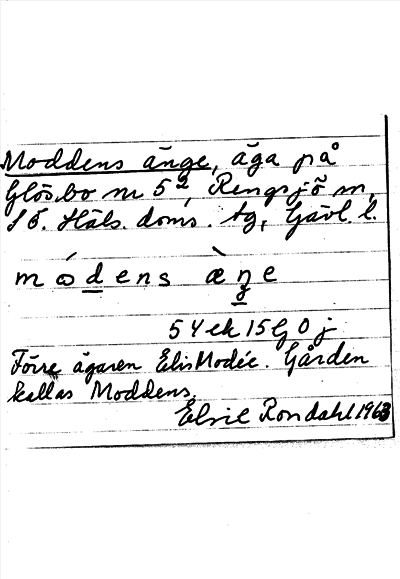 Moddens änge, äga på
Glösbo nr 5², Rengsjö sn,
S Ö. Häls. doms. tg, Gävl. l.
mòdens æ̀ŋe
54ek 15G 0j
Förre ägaren Elis Modée. Gården
kallas Moddens.
Elsie Rondahl 1963